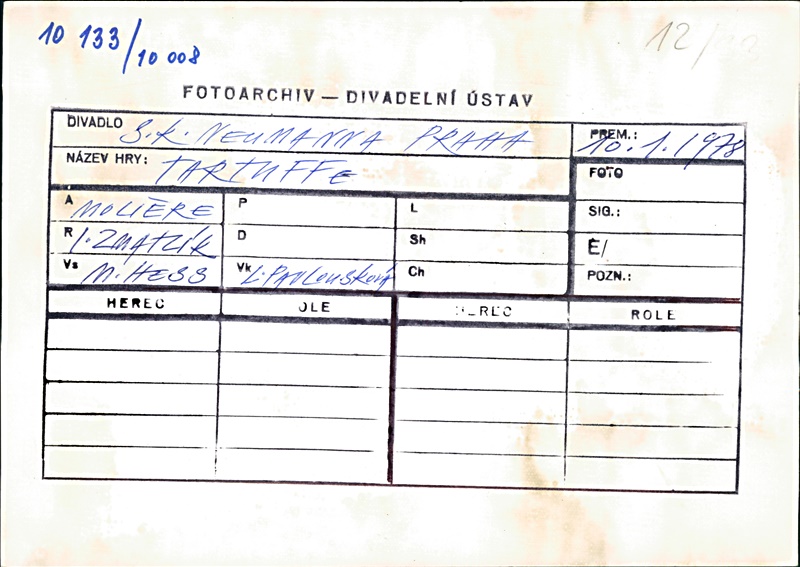 10 133/10 008
12/
FOTOARCHIV — DIVADELNÍ ÚSTAV
DIVADLO S.K. NEUMANNA PRAHA PREM.: 10.1.1978
NÁZEV HRY: TARTUFFE FOTO
A MOLIÈRE P L SIG.:
R I. ZMATLÍK D Sh É/
Vs M. HESS Vk L. PAVLOUSKOVÁ Ch POZN.:
HEREC OLE EREC ROLE